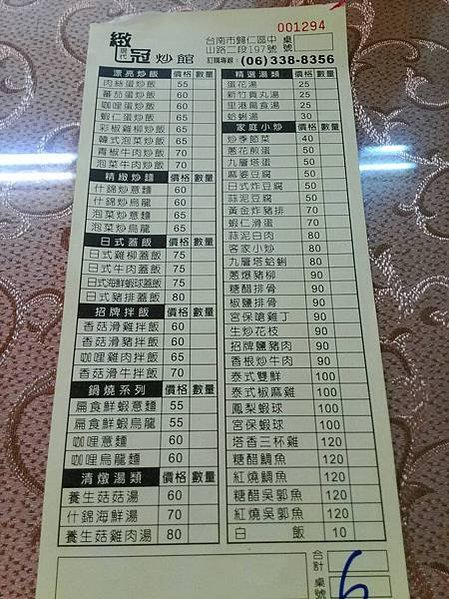 001294
緻冠炒館
台南市歸仁區中
山路二段197號
桌號
訂購專線：(06)338-8356
漂亮炒飯 價格 數量
肉絲蛋炒飯 55
蕃茄蛋炒飯 60
咖哩蛋炒飯 60
蝦仁蛋炒飯 65
彩椒雞柳炒飯 65
韓式泡菜炒飯 65
青椒牛肉炒飯 70
泡菜牛肉炒飯 70
精緻炒麵 價格 數量
什錦炒意麵 60
什錦炒烏龍 60
泡菜炒意麵 65
泡菜炒烏龍 65
日式蓋飯 價格 數量
日式雞柳蓋飯 75
日式牛肉蓋飯 75
日式海鮮蝦球蓋飯 75
日式豬排蓋飯 80
招牌拌飯 價格 數量
香菇滑雞拌飯 60
香菇滑豬拌飯 60
咖哩雞肉拌飯 65
香菇滑牛拌飯 70
鍋燒系列 價格 數量
扁食鮮蝦意麵 55
扁食鮮蝦烏龍 55
咖哩意麵 60
咖哩烏龍麵 60
清燉湯類 價格 數量
養生菇菇湯 60
什錦海鮮湯 70
養生菇菇雞肉湯 80
精選湯類 價格 數量
蛋花湯 25
新竹貢丸湯 25
里港扁食湯 25
蛤蜊湯 30
家庭小炒 價格 數量
炒季節菜 40
蔥花煎蛋 50
九層塔蛋 50
麻婆豆腐 50
日式炸豆腐 50
蒜泥豆腐 50
黃金炸豬排 70
蝦仁滑蛋 70
蒜泥白肉 80
客家小炒 80
九層塔蛤蜊 80
蔥爆豬柳 90
糖醋排骨 90
椒鹽排骨 90
宮保嗆雞丁 90
生炒花枝 90
招牌鹽豬肉 90
香根炒牛肉 90
泰式雙鮮 100
泰式椒麻雞 100
鳳梨蝦球 100
宮保蝦球 100
塔香三杯雞 120
糖醋鯛魚 120
紅燒鯛魚 120
糖醋吳郭魚 120
紅燒吳郭魚 120
白飯 10
合計
桌號 6